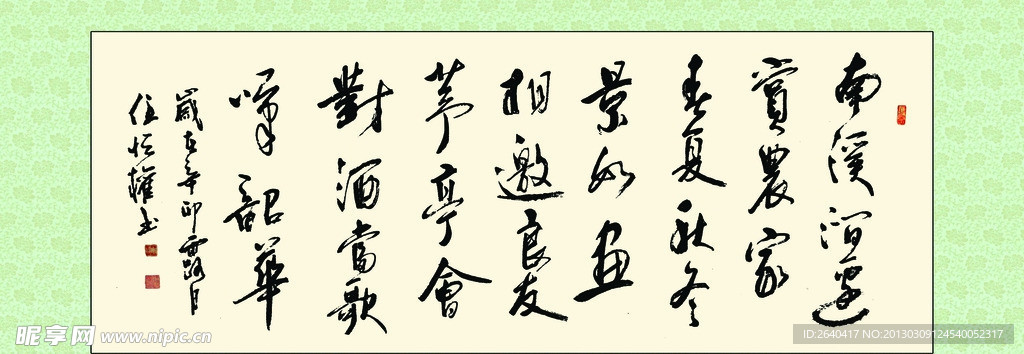 南溪邊
賞農家
春夏秋冬
景如畫
相邀良友
茅亭會
對酒當歌
韶華
歲在辛卯露月
恒權书
昵享网 www.nipic.cn
ID:2640417 NO:20130309124540052317